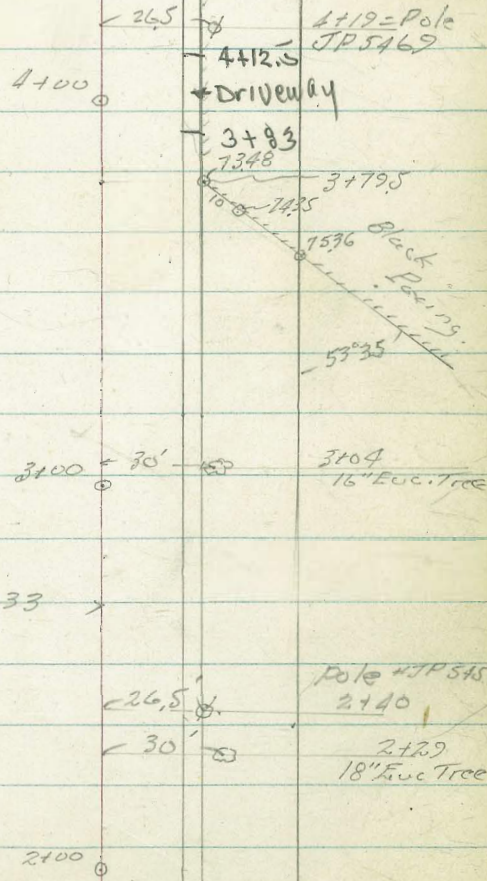 26.5
4+19=Pole
JP5469
4+12.5
4+00
Driveway
3+83
73.48
3+79.5
10
74.35
75.36
Black
Paving.
53°35
3+00
30'
3+04
16" Euc. Tree
33
Pole #JP545
26.5'
2+40
30'
2+29
18" Euc Tree
2+00